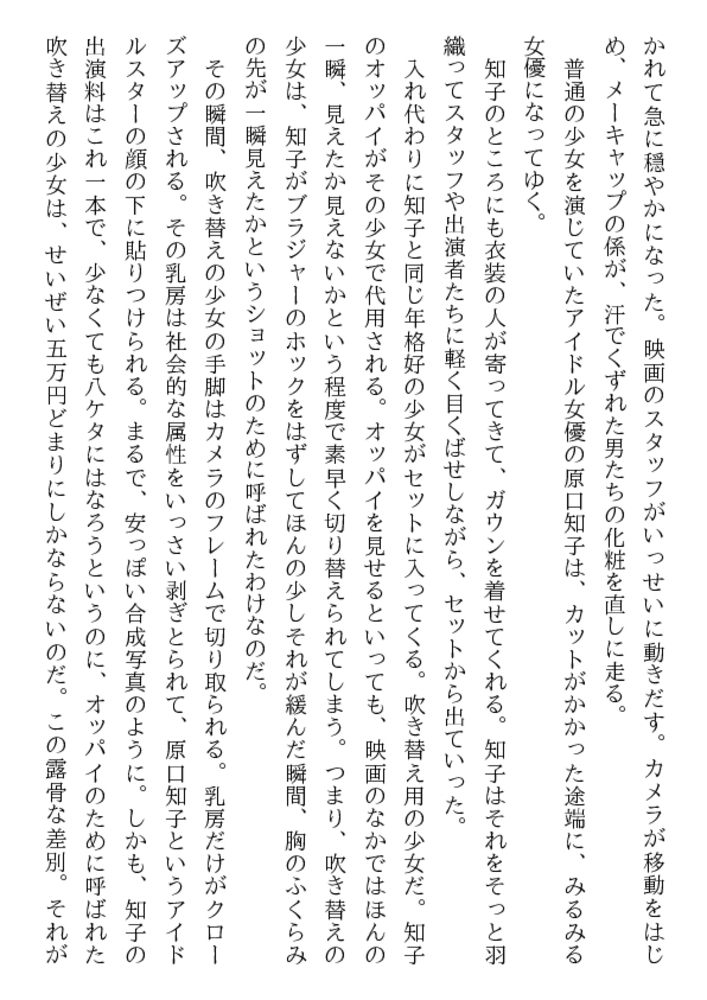 かれて急に穏やかになった。映画のスタッフがいっせいに動きだす。カメラが移動をはじ
め、メーキャップの係が、汗でくずれた男たちの化粧を直しに走る。
普通の少女を演じていたアイドル女優の原口知子は、カットがかかった途端に、みるみる
女優になってゆく。
知子のところにも衣装の人が寄ってきて、ガウンを着せてくれる。知子はそれをそっと羽
織ってスタッフや出演者たちに軽く目くばせしながら、セットから出ていった。
入れ代わりに知子と同じ年格好の少女がセットに入ってくる。吹き替え用の少女だ。知子
のオッパイがその少女で代用される。オッパイを見せるといっても、映画のなかではほんの
一瞬、見えたか見えないかという程度で素早く切り替えられてしまう。つまり、吹き替えの
少女は、知子がブラジャーのホックをはずしてほんの少しそれが緩んだ瞬間、胸のふくらみ
の先が一瞬見えたかというショットのために呼ばれたわけなのだ。
その瞬間、吹き替えの少女の手脚はカメラのフレームで切り取られる。乳房だけがクロー
ズアップされる。その乳房は社会的な属性をいっさい剥ぎとられて、原口知子というアイド
ルスターの顔の下に貼りつけられる。まるで、安っぽい合成写真のように。しかも、知子の
出演料はこれ一本で、少なくても八ケタにはなろうというのに、オッパイのために呼ばれた
吹き替えの少女は、せいぜい五万円どまりにしかならないのだ。この露骨な差別。それが